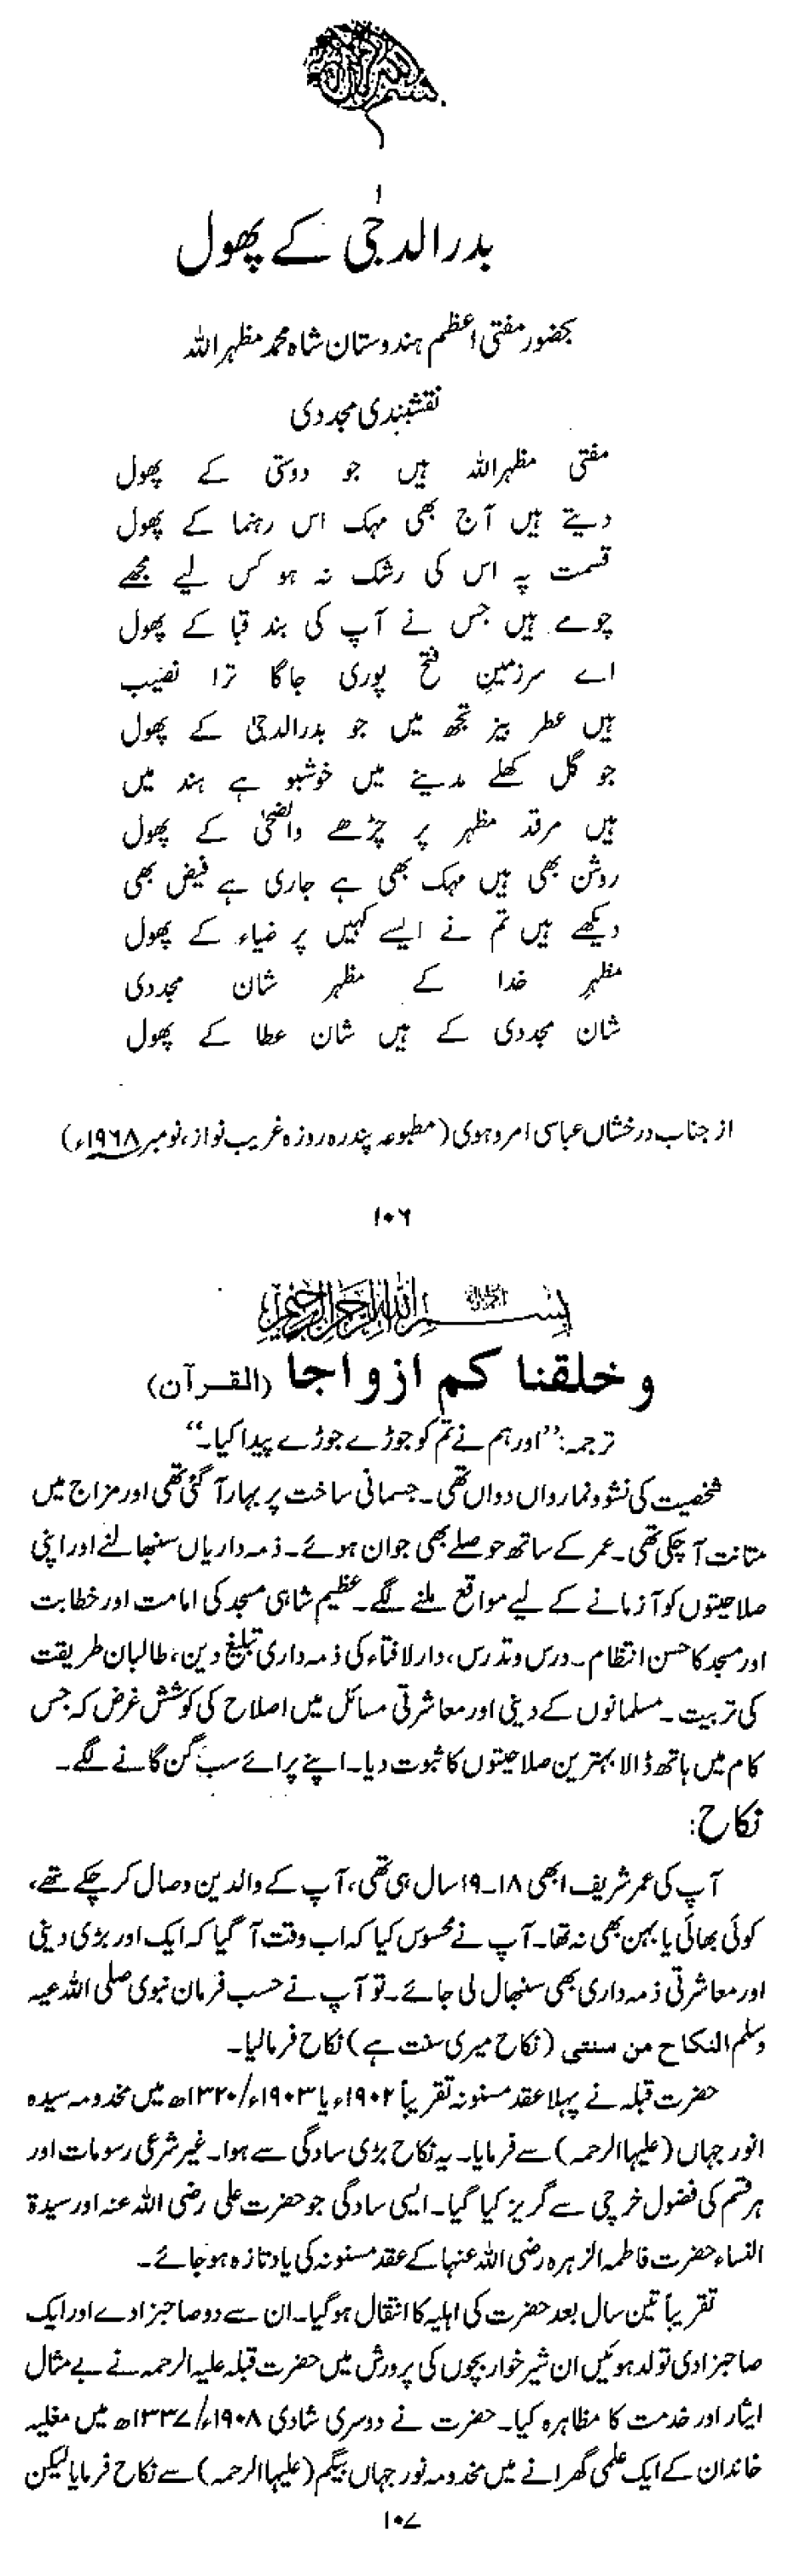 بسم اللہ الرحمن الرحیم
بدرالدجیٰ کے پھول
بحضور مفتی اعظم ہندوستان شاہ محمد مظہر اللہ
نقشبندی مجددی
مفتی مظہراللہ ہیں جو دوستی کے پھول
دیتے ہیں آج بھی مہک اس رہنما کے پھول
قسمت پہ اس کی رشک نہ ہو کس لیے مجھے
چومے ہیں جس نے آپ کی بند قبا کے پھول
اے سرزمینِ فتح پوری جاگا ترا نصیب
ہیں عطر بیز تجھ میں جو بدرالدجیٰ کے پھول
جو گل کھلے مدینے میں خوشبو ہے ہند میں
ہیں مرقد مظہر پر چڑھے والضحیٰ کے پھول
روشن بھی ہیں مہک بھی ہے جاری ہے فیض بھی
دیکھے ہیں تم نے ایسے کہیں پر ضیاء کے پھول
مظہرِ خدا کے مظہر شان مجددی
شان مجددی کے ہیں شان عطا کے پھول
از جناب درخشاں عباسی امروہوی (مطبوعہ پندرہ روزہ غریب نواز، نومبر ۱۹۶۸ء)
۱۰۶
بسم اللہ الرحمن الرحیم
و خلقنا کم ازواجا (القرآن)
ترجمہ: ’’اور ہم نے تم کو جوڑے جوڑے پیدا کیا۔‘‘
شخصیت کی نشوونما رواں دواں تھی۔ جسمانی ساخت پر بہار آ گئی تھی اور مزاج میں
متانت آ چکی تھی۔ عمر کے ساتھ حوصلے بھی جوان ہوئے۔ ذمہ داریاں سنبھالنے اور اپنی
صلاحیتوں کو آزمانے کے لیے مواقع ملنے لگے۔ عظیم شاہی مسجد کی امامت اور خطابت
اور مسجد کا حسن انتظام۔ درس و تدرس، دارلافتاء کی ذمہ داری تبلیغ دین، طالبان طریقت
کی تربیت۔ مسلمانوں کے دینی اور معاشرتی مسائل میں اصلاح کی کوشش غرض کہ جس
کام میں ہاتھ ڈالا بہترین صلاحیتوں کا ثبوت دیا۔ اپنے پرائے سب گن گانے لگے۔
نکاح:
آپ کی عمر شریف ابھی ۱۸۔۱۹ سال ہی تھی، آپ کے والدین وصال کر چکے تھے،
کوئی بھائی یا بہن بھی نہ تھا۔ آپ نے محسوس کیا کہ اب وقت آ گیا کہ ایک اور بڑی دینی
اور معاشرتی ذمہ داری بھی سنبھال لی جائے۔ تو آپ نے حسب فرمان نبوی صلی اللہ عیہ
وسلم النکاح من سنتی (نکاح میری سنت ہے) نکاح فرمالیا۔
حضرت قبلہ نے پہلا عقد مسنونہ تقریباً ۱۹۰۲ء یا ۱۹۰۳ء/۱۳۲۰ھ میں مخدومہ سیدہ
انور جہاں (علیہا الرحمہ) سے فرمایا۔ یہ نکاح بڑی سادگی سے ہوا۔ غیر شرعی رسومات اور
ہر قسم کی فضول خرچی سے گریز کیا گیا۔ ایسی سادگی جو حضرت علی رضی اللہ عنہ اور سیدۃ
النساء حضرت فاطمہ الزہرہ رضی اللہ عنہا کے عقد مسنونہ کی یاد تازہ ہو جائے۔
تقریباً تین سال بعد حضرت کی اہلیہ کا انتقال ہو گیا۔ ان سے دو صاحبزادے اور ایک
صاحبزادی تولد ہوئیں ان شیر خوار بچوں کی پرورش میں حضرت قبلہ علیہ الرحمہ نے بے مثال
ایثار اور خدمت کا مظاہرہ کیا۔ حضرت نے دوسری شادی ۱۹۰۸ء/۱۳۳۷ھ میں مغلیہ
خاندان کے ایک علمی گھرانے میں مخدومہ نور جہاں بیگم (علیہا الرحمہ) سے نکاح فرمایا لیکن
۱۰۷